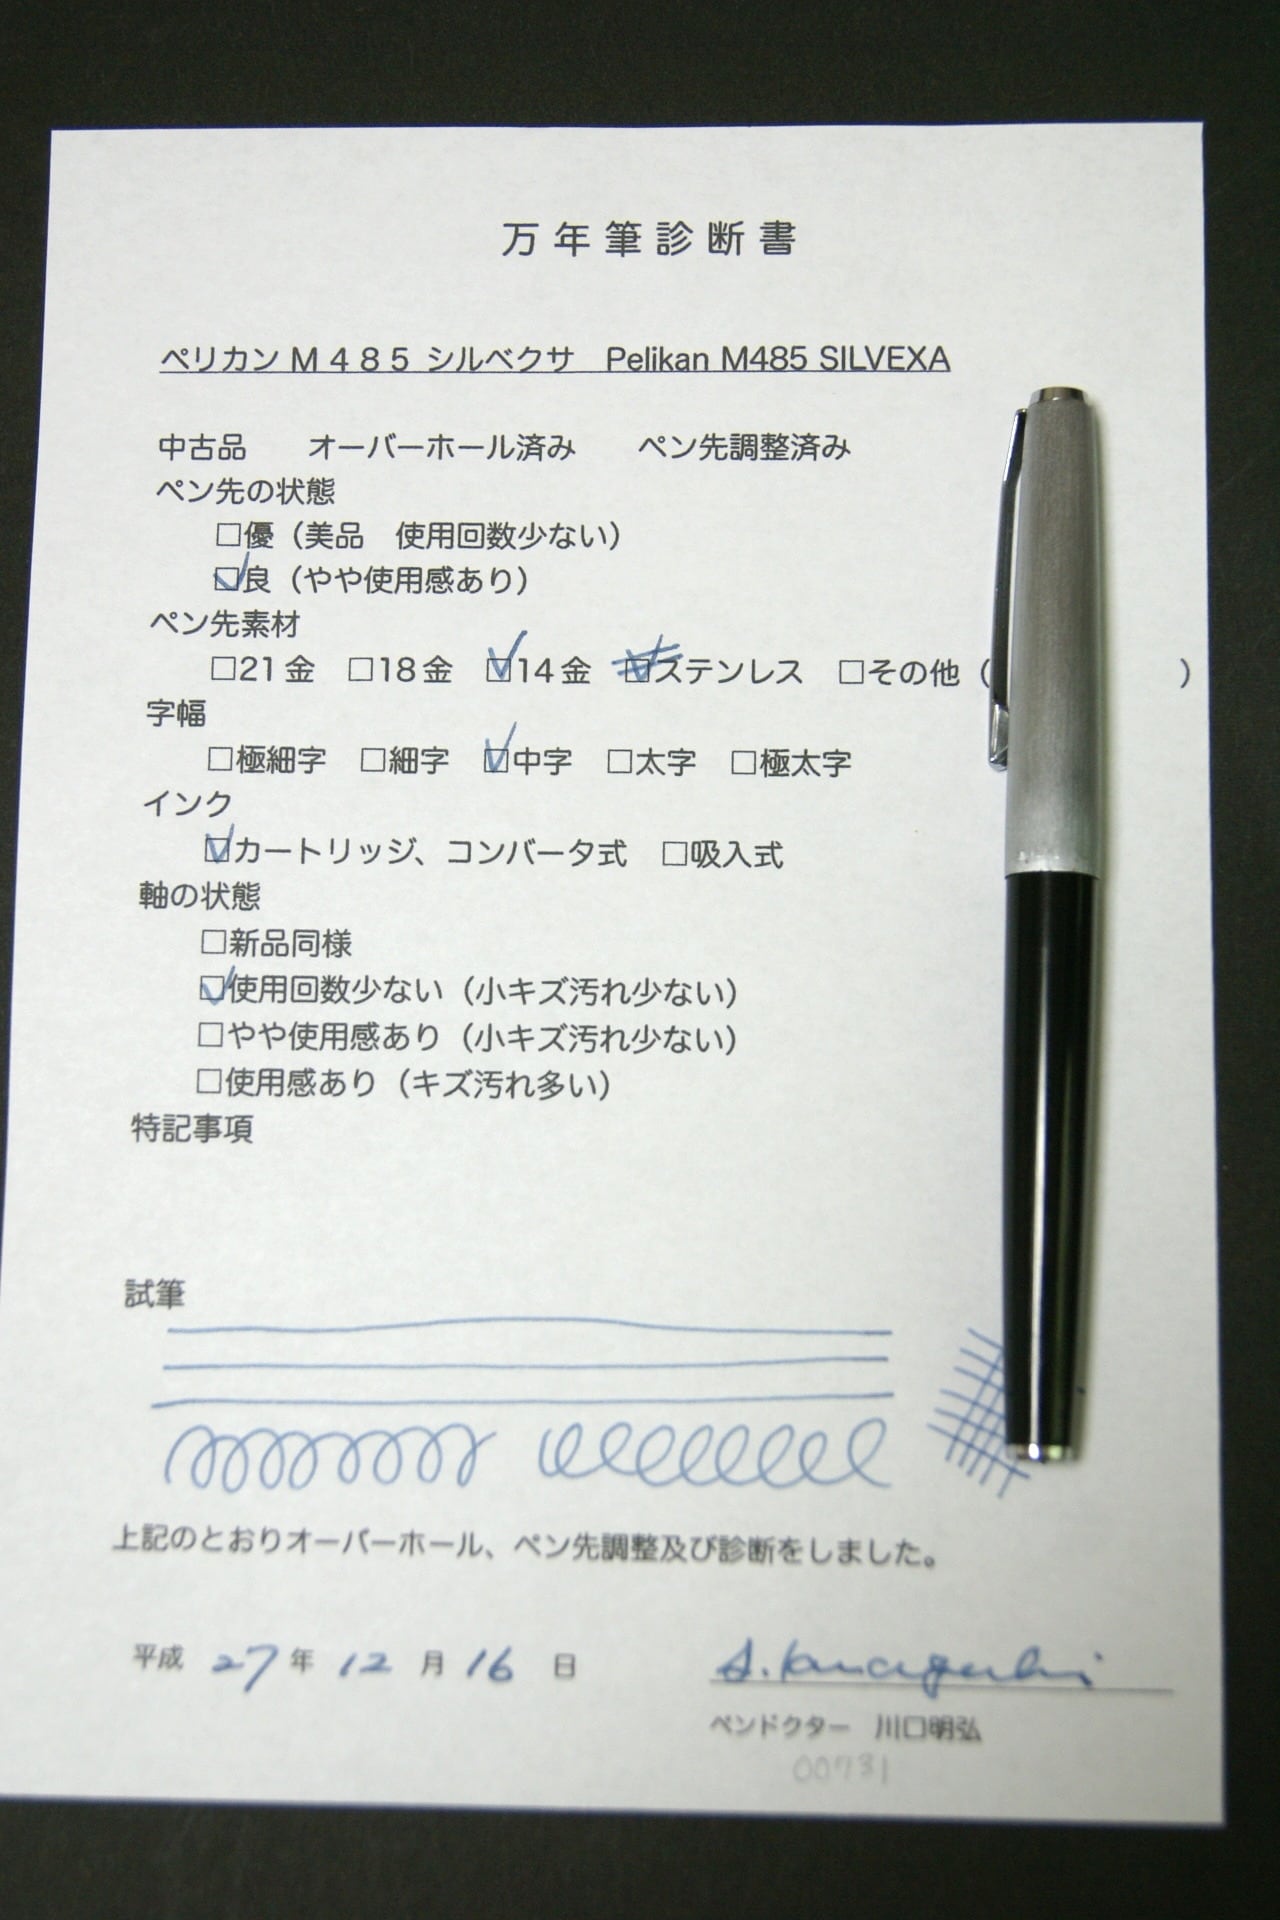 万年筆診断書
ペリカン M485 シルベクサ　Pelikan M485 SILVEXA
中古品　オーバーホール済み　ペン先調整済み
ペン先の状態
□優（美品　使用回数少ない）
☑良（やや使用感あり）
ペン先素材
□21金　□18金　☑14金　☑ステンレス　□その他（　　　）
字幅
□極細字　□細字　☑中字　□太字　□極太字
インク
☑カートリッジ、コンバータ式　□吸入式
軸の状態
□新品同様
☑使用回数少ない（小キズ汚れ少ない）
□やや使用感あり（小キズ汚れ少ない）
□使用感あり（キズ汚れ多い）
特記事項
試筆
上記のとおりオーバーホール、ペン先調整及び診断をしました。
平成 27年 12月 16日
ペンドクター　川口明弘
00731